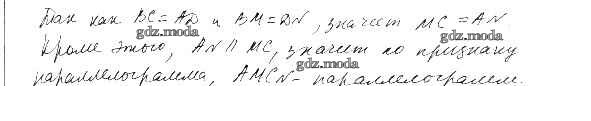 Так как BC = AD и BM = DN, значит MC = AN
gdz.moda
Кроме этого, AN || MC, значит по признаку
gdz.moda
gdz.moda
параллелограмма, AMCN - параллелограмм.